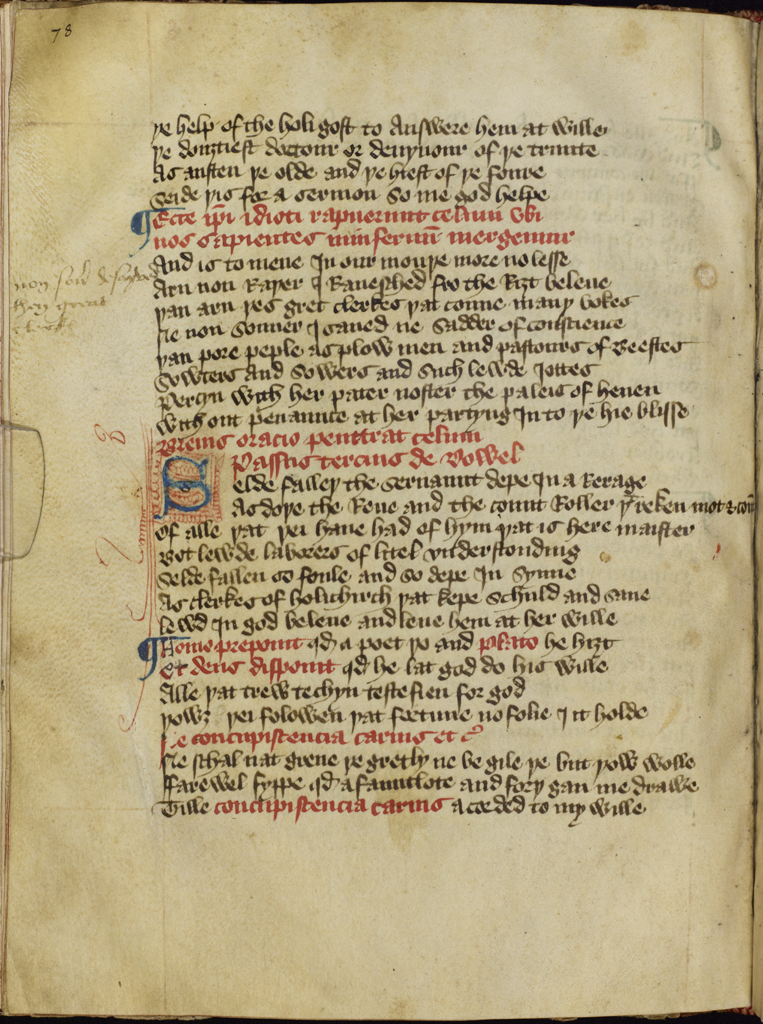 78
ye help of the holi gost to Answere hem at wille
ye douztiest doctour or deuynour of ye trinite
As austen ye olde and ye hiest of ye foure
Seide yis for a sermon so me god helpe
¶ Ecce ipi idioti rapuerunt celum vbi
nos sapientes in infernū mergemur
And is to mene In our mouye more no lesse
Arn non Rayer I Raueshed fro the Rizt beleue
yan arn yes gret clerkes yat conne many bokes
Ne non sonner I saued ne Sadder of conscience
yan pore peple as plow men and pastours of Beestes
Sowters and Sowers and Such lewde Jottes
Percyn with her pater noster the paleis of heuen
with out penaunce at her partyng In to ye hie blisse
Breuis oracio penitrat celum
Passus tercius de dowel
Selde falley the Seruaunt depe In a Rerage
As doye the Reue and the count Roller yt reken mot & coūt
Of alle yat yei haue had of hym yat is here maister
Bot lewde laborers of litel vnderstonding
Selde fallen so foule and so depe In Synne
As clerkes of holichirch yat kepe Schuld and saue
lewd In god beleue and leue hem at her wille
¶ Homo proponit qd a poet yo and Plato he hizt
Et deus disponit qd he lat god do his wille
Alle yat trew techyn testefien for god
yowz yei folowen yat fortune no folie I it holde
Ne concupiscencia carnis et c̄
Ne schal nat greue ye gretly ne be gile ye but yow wolle
Farewel fyppe qd a fauntlote and fory gan me drawe
Tille concupiscencia carnis acorded to my wille